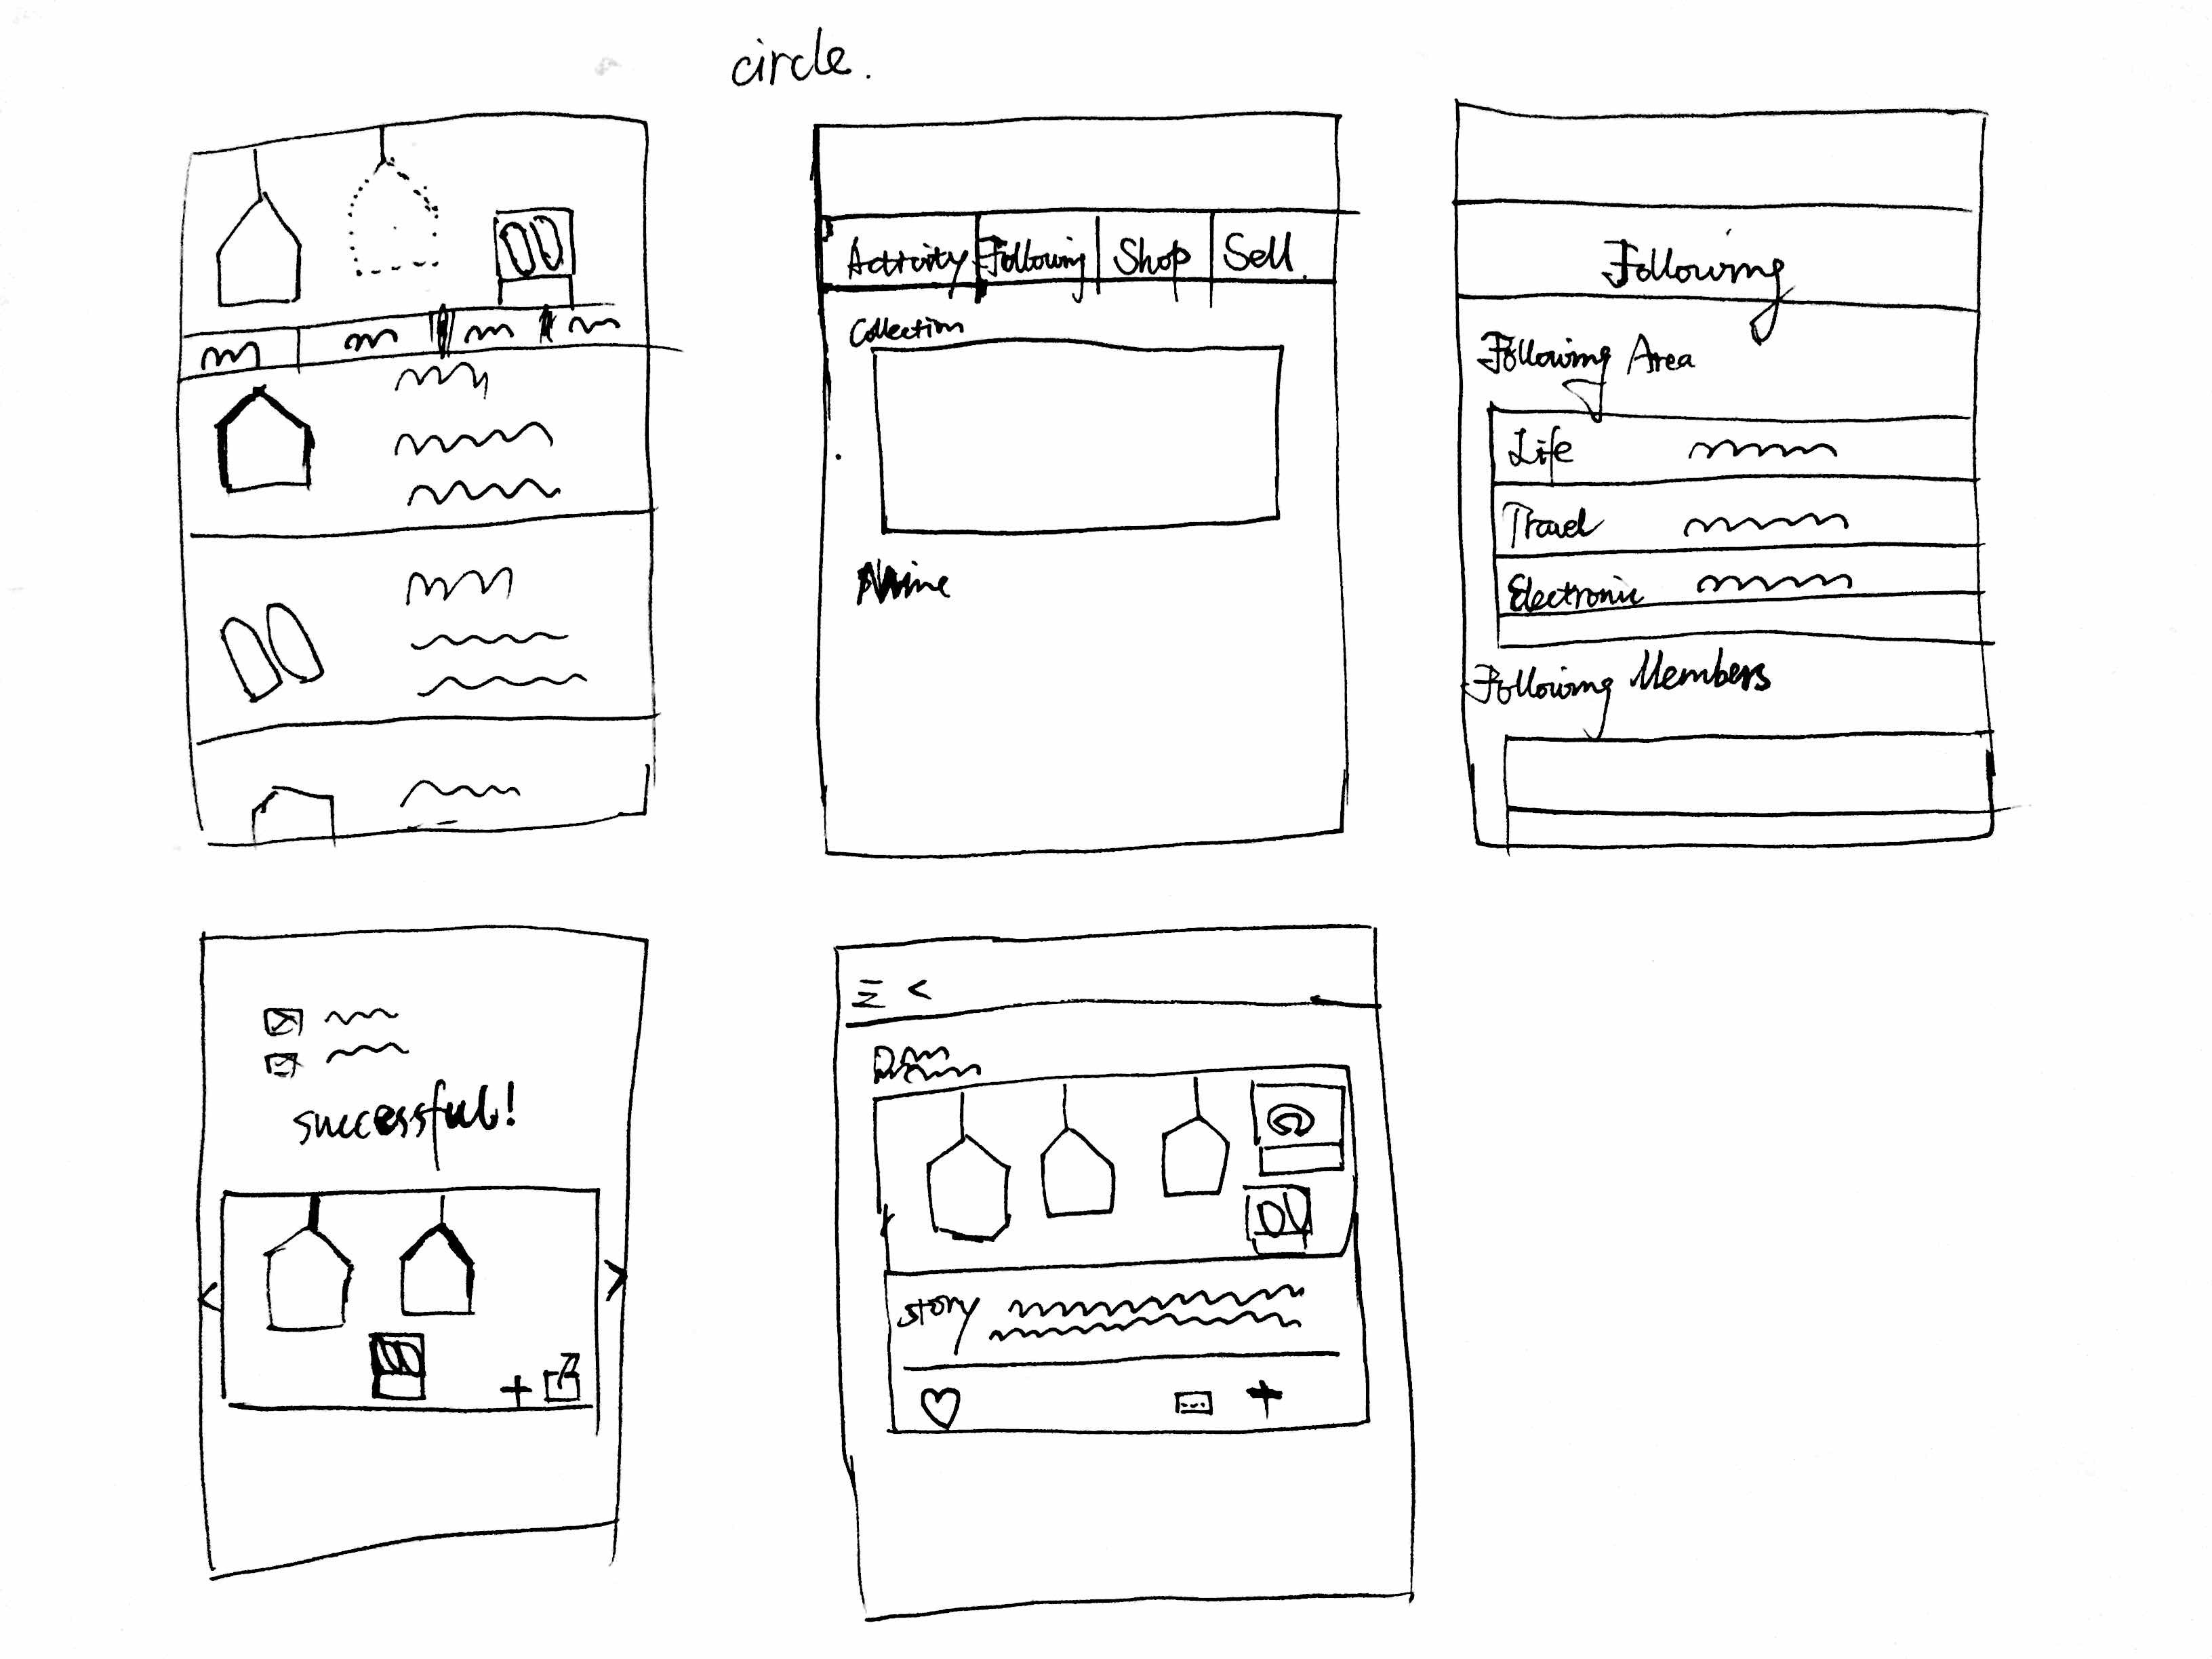 circle.
Activity Following Shop Sell.
Collection
Following
Following Area
Life
Travel
Electronic
Following Members
successful!
story